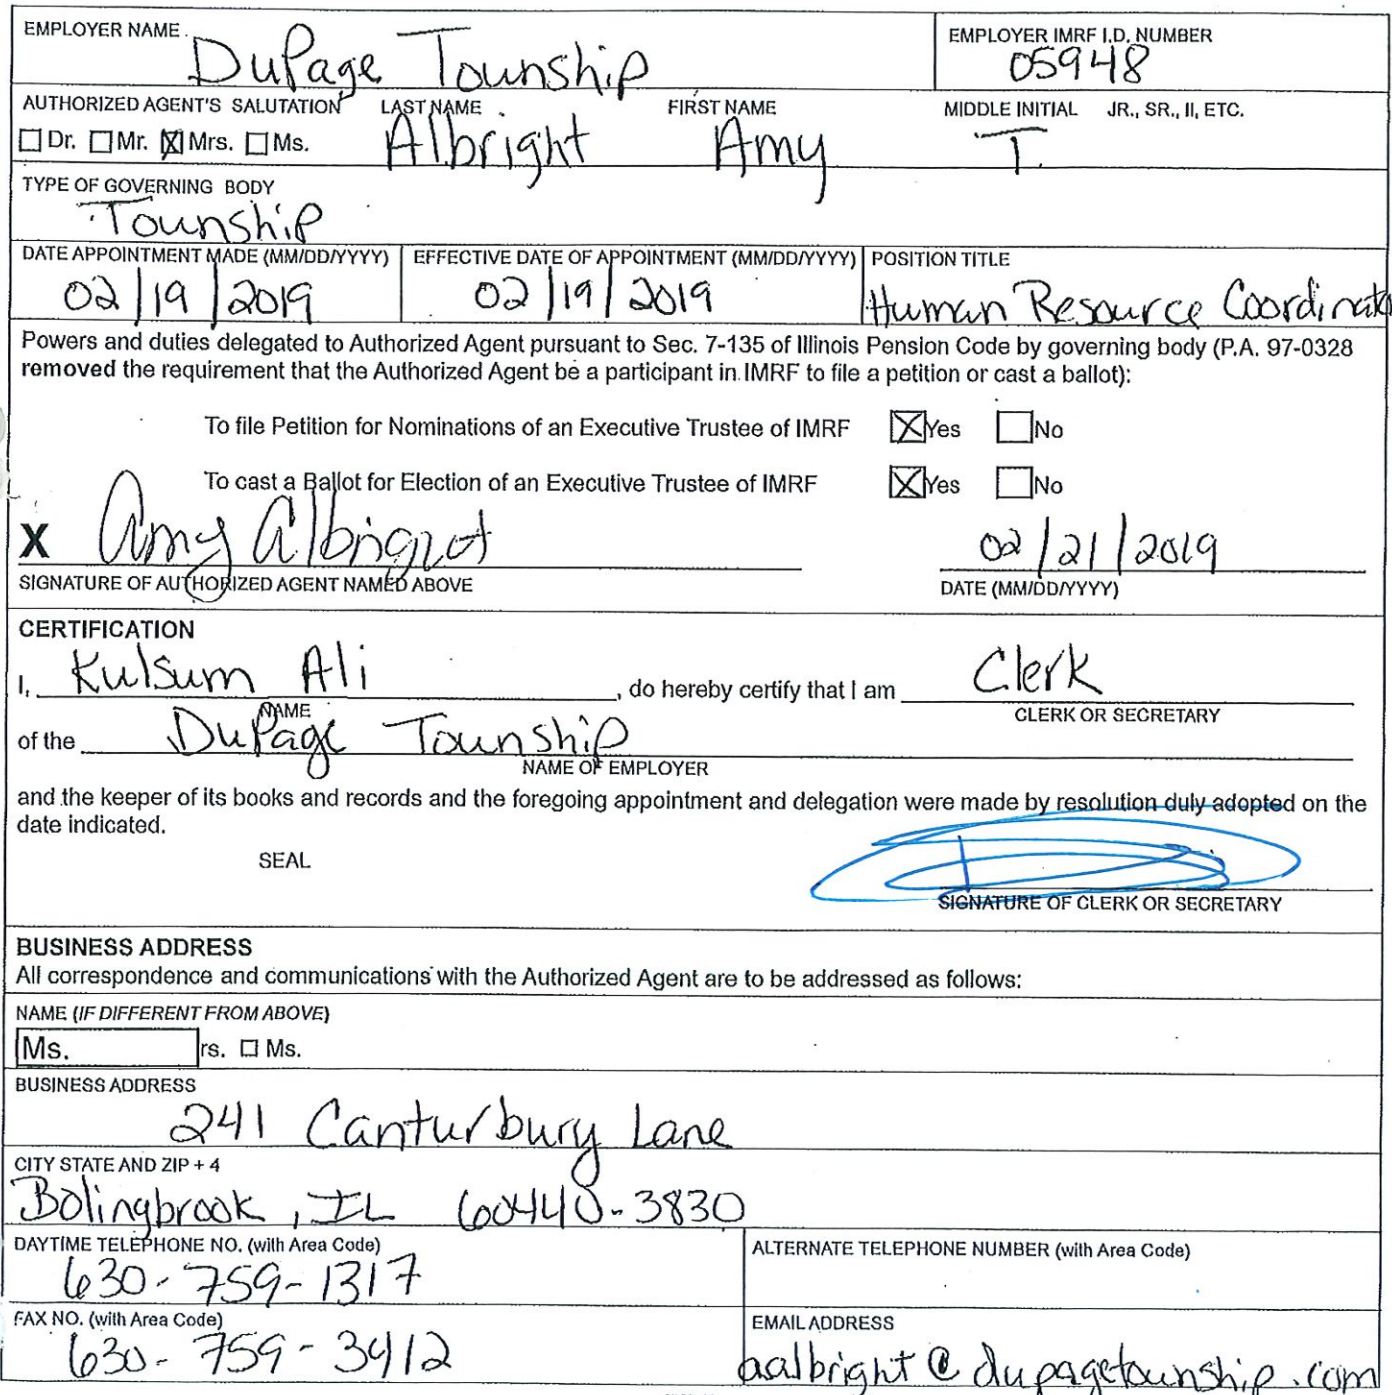 EMPLOYER NAME EMPLOYER IMRF I.D. NUMBER
DuPage Township 05948
AUTHORIZED AGENT'S SALUTATION LAST NAME FIRST NAME MIDDLE INITIAL JR., SR., II, ETC.
☐ Dr. ☐ Mr. ☒ Mrs. ☐ Ms. Albright Amy T.
TYPE OF GOVERNING BODY
Township
DATE APPOINTMENT MADE (MM/DD/YYYY) EFFECTIVE DATE OF APPOINTMENT (MM/DD/YYYY) POSITION TITLE
02/19/2019 02/19/2019 Human Resource Coordinato
Powers and duties delegated to Authorized Agent pursuant to Sec. 7-135 of Illinois Pension Code by governing body (P.A. 97-0328
removed the requirement that the Authorized Agent be a participant in IMRF to file a petition or cast a ballot):
To file Petition for Nominations of an Executive Trustee of IMRF ☒ Yes ☐ No
To cast a Ballot for Election of an Executive Trustee of IMRF ☒ Yes ☐ No
X Amy Albright 02/21/2019
SIGNATURE OF AUTHORIZED AGENT NAMED ABOVE DATE (MM/DD/YYYY)
CERTIFICATION
I, Kulsum Ali, do hereby certify that I am Clerk
NAME CLERK OR SECRETARY
of the DuPage Township
NAME OF EMPLOYER
and the keeper of its books and records and the foregoing appointment and delegation were made by resolution duly adopted on the
date indicated.
SEAL
SIGNATURE OF CLERK OR SECRETARY
BUSINESS ADDRESS
All correspondence and communications with the Authorized Agent are to be addressed as follows:
NAME (IF DIFFERENT FROM ABOVE)
Ms. rs. ☐ Ms.
BUSINESS ADDRESS
241 Canturbury Lane
CITY STATE AND ZIP + 4
Bolingbrook, IL 60440-3830
DAYTIME TELEPHONE NO. (with Area Code) ALTERNATE TELEPHONE NUMBER (with Area Code)
630-759-1317
FAX NO. (with Area Code) EMAIL ADDRESS
630-759-3412 aalbright@dupagetownship.com